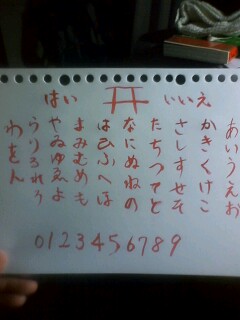 はい いいえ
あいうえお
かきくけこ
さしすせそ
たちつてと
なにぬねの
はひふへほ
まみむめも
やゐゆゑよ
らりるれろ
わをん
0123456789